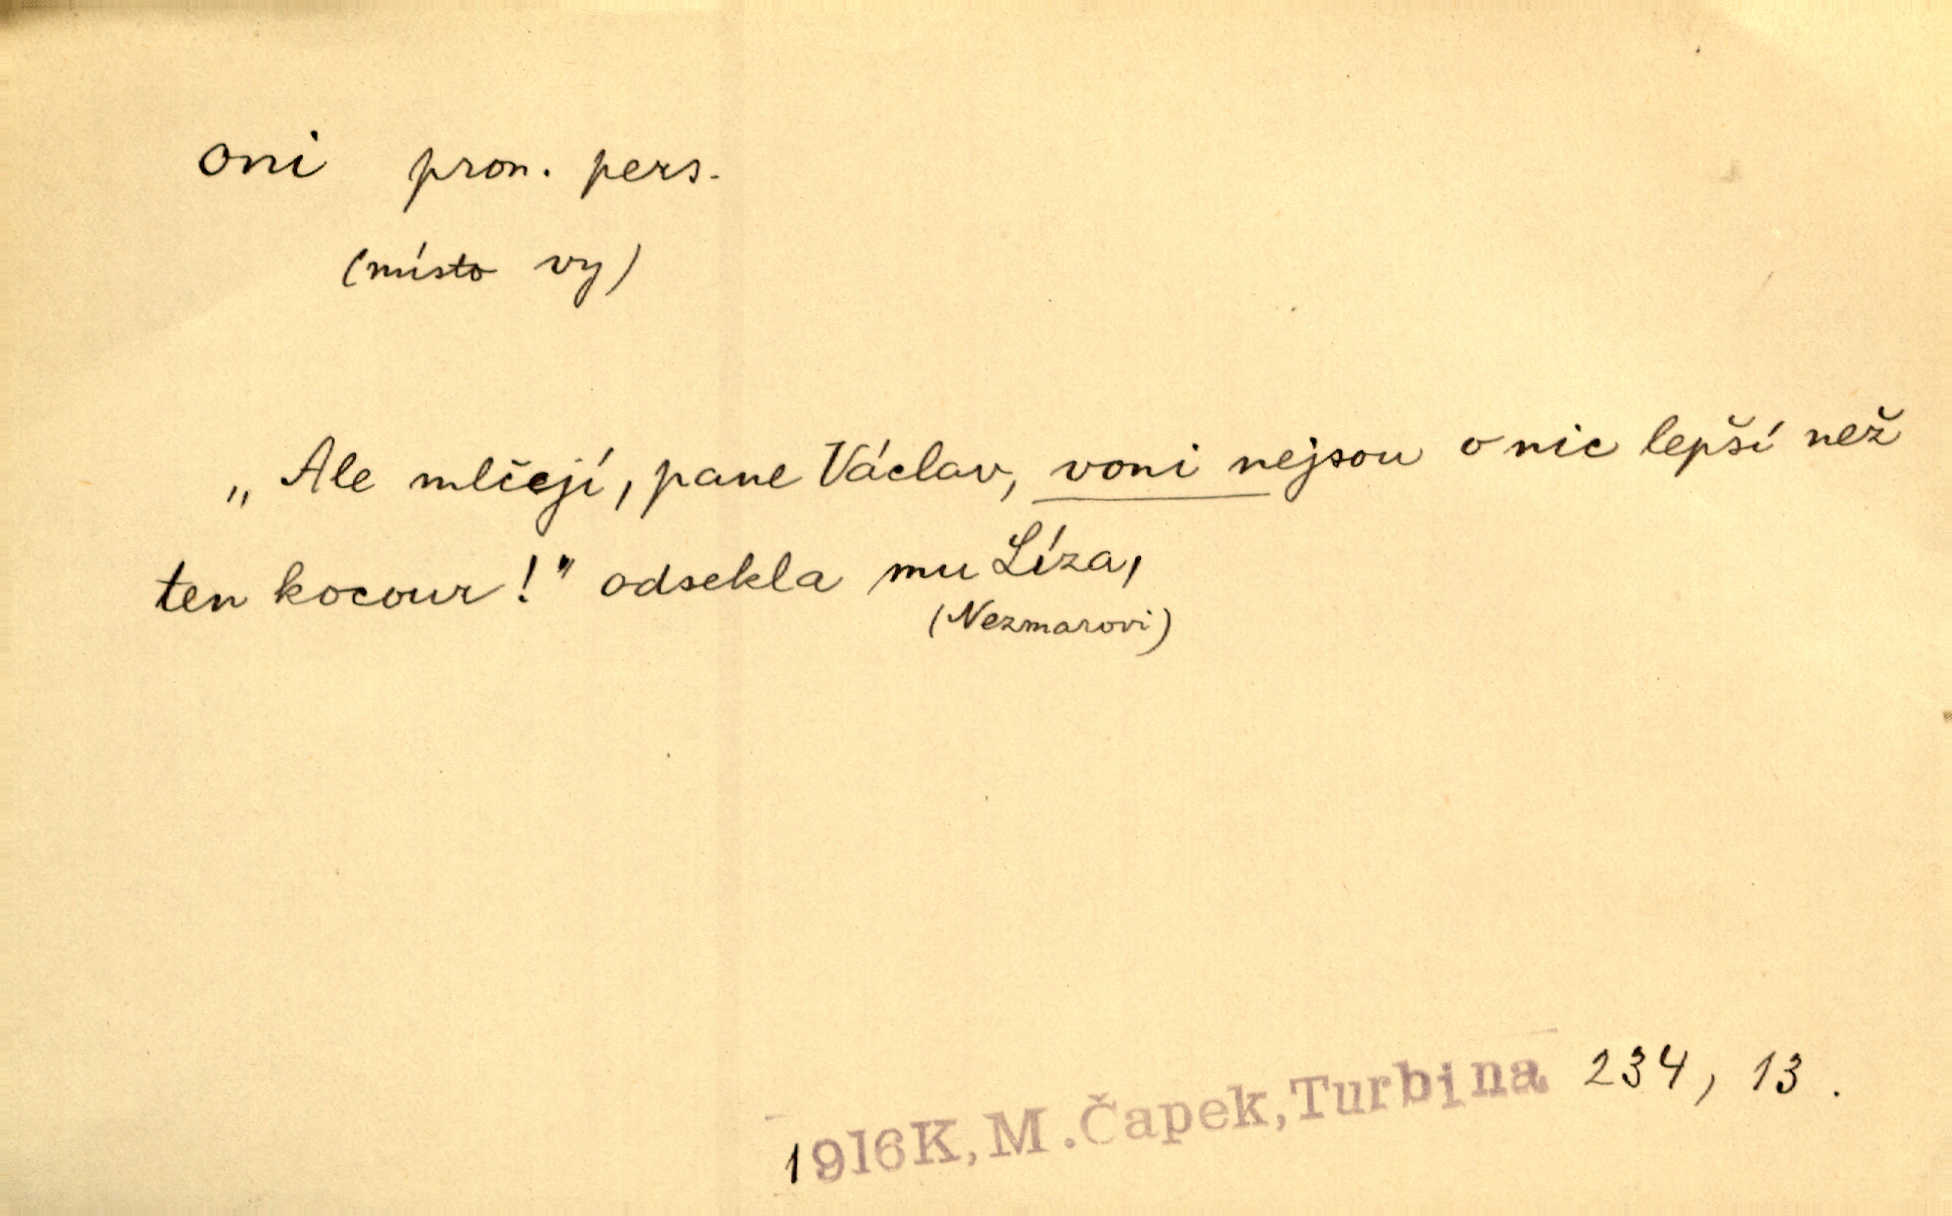 oni pron. pers.
(místo vy)
„Ale mlčejí, pane Václav, voni nejsou o nic lepší než
ten kocour!" odsekla mu Líza,
(Nezmarovi)
1916K, M. Čapek, Turbina 234, 13.